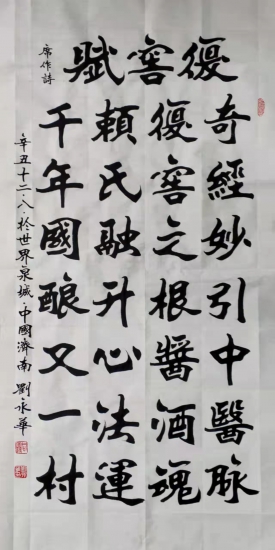 復窖賦
席作詩
奇經妙引中醫脉
復窖之根醬酒魂
頼氏融升心法運
千年國釀又一村
辛丑十二·八·於世界泉城·中國濟南 劉永華